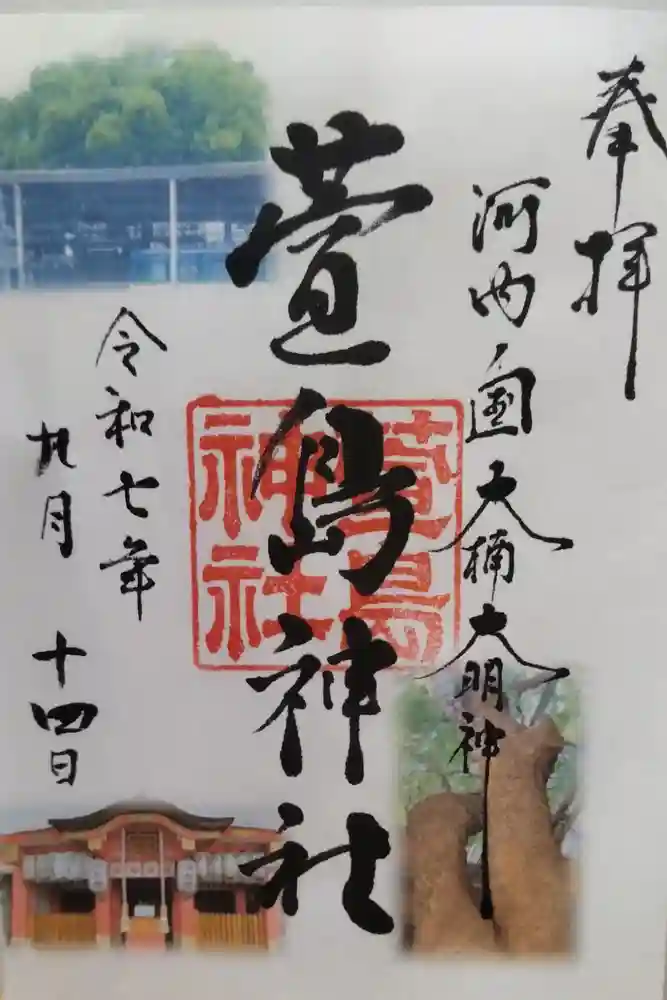 奉拝
河内国大楠大明神
萱島神社
萱島
神社
令和七年
九月 十四日